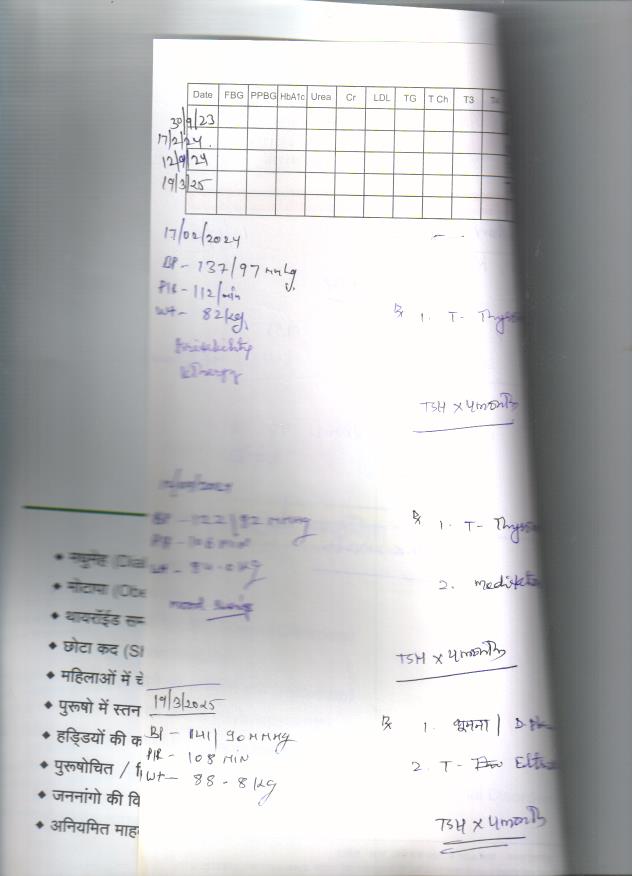 Date FBG PPBG HbA1c Urea Cr LDL TG T Ch T3
30/9/23
17/2/24.
12/9/24
19/3/25
17/02/2024
BP - 137/97 mmHg
P/R - 112/min
Wt - 82kg
Irritability
Rx 1. T- Thyro
TSH x 4months
BP - 122/82 mmHg
Rx 1. T- Thyro
2.
mood swings
TSH x 4months
19/3/2025
BP - 141/90 MMHg
P/R - 108 MIN
Wt - 88-8kg
Rx 1. घूमना /
2. T- Elt
TSH x 4months
मधुमेह (Dia
मोटापा (Obe
थायरॉईड सम
छोटा कद (S
महिलाओं में चे
पुरूषो में स्तन
हड्डियों की क
पुरूषोचित /
जननांगो की वि
अनियमित माह